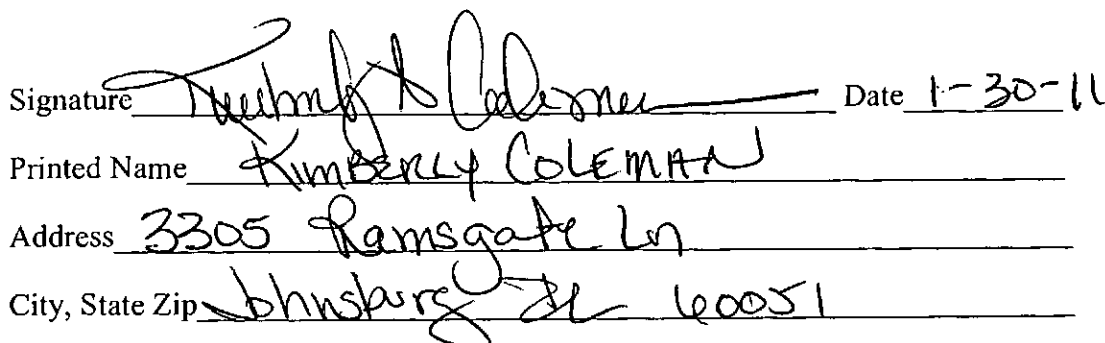 Signature Kimberly A Coleman Date 1-30-11
Printed Name KIMBERLY COLEMAN
Address 3305 Ramsgate Ln
City, State Zip Johnsburg IL 60051